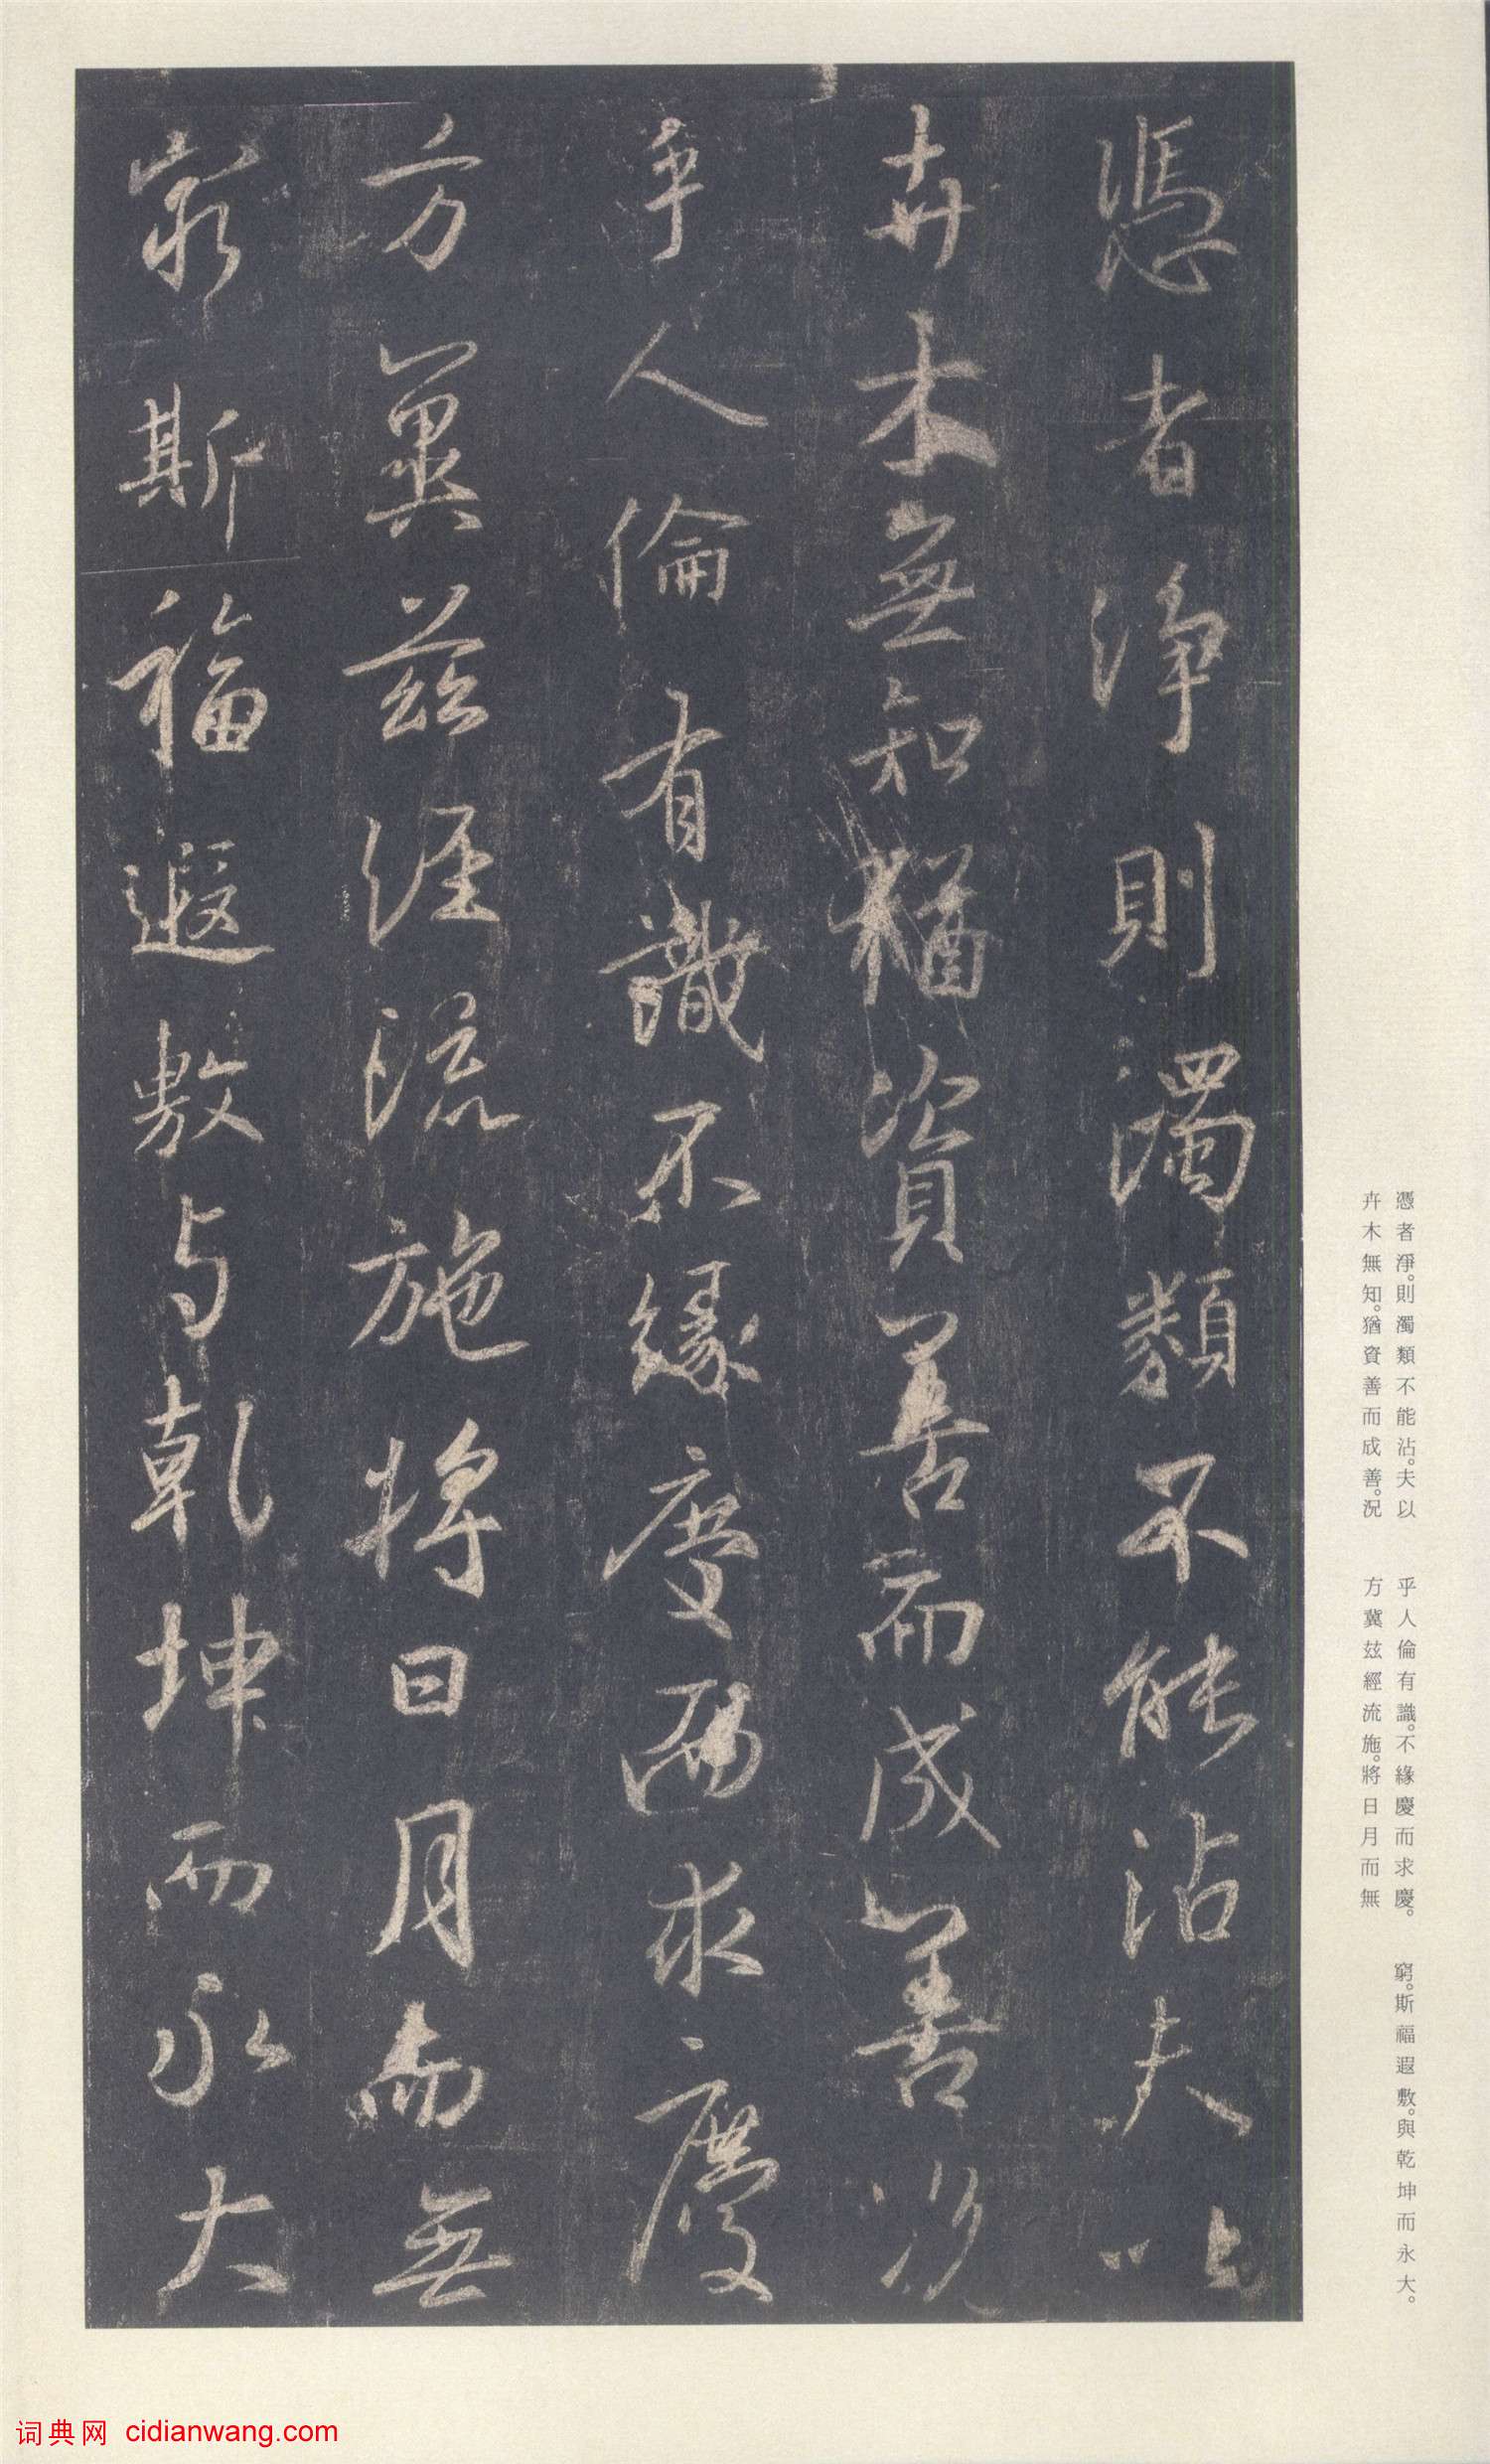 憑者淨則濁類不能沾夫以
卉木無知猶資善而成善況
乎人倫有識不緣慶而求慶
方冀茲經流施將日月而無
窮斯福遐敷与乾坤而永大
憑者淨。則濁類不能沾。夫以
卉木無知。猶資善而成善。況
乎人倫有識。不緣慶而求慶。
方冀玆經流施。將日月而無
窮。斯福遐敷。與乾坤而永大。
词典网 cidianwang.com